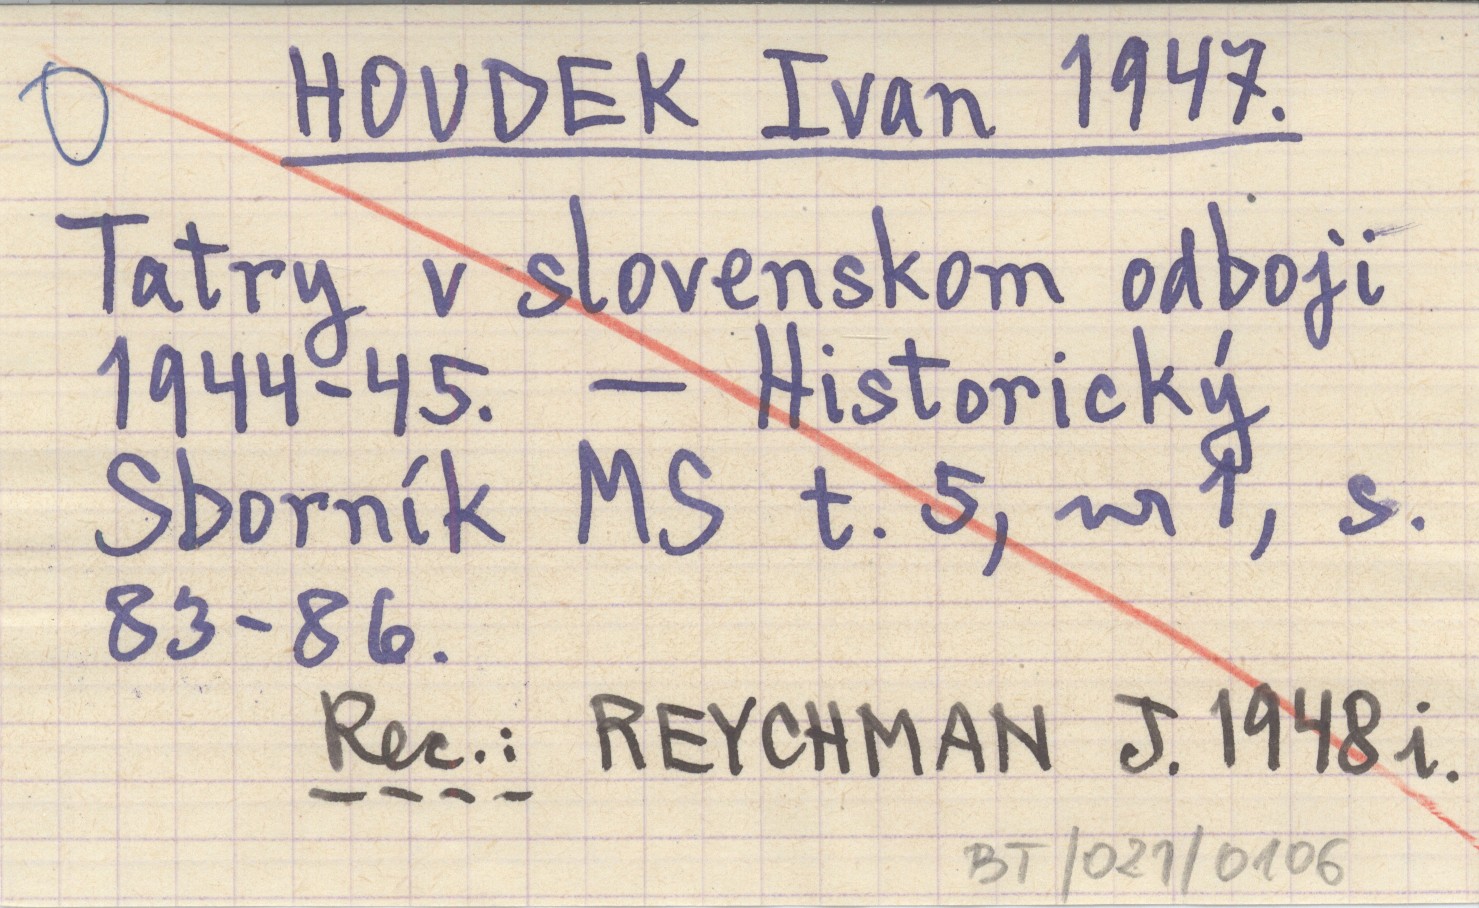 O
HOUDEK Ivan 1947.
Tatry v slovenskom odboji
1944-45. — Historický
Sborník MS t. 5, nr 1, s.
83-86.
Rec.: REYCHMAN J. 1948 i.
BT/021/0106